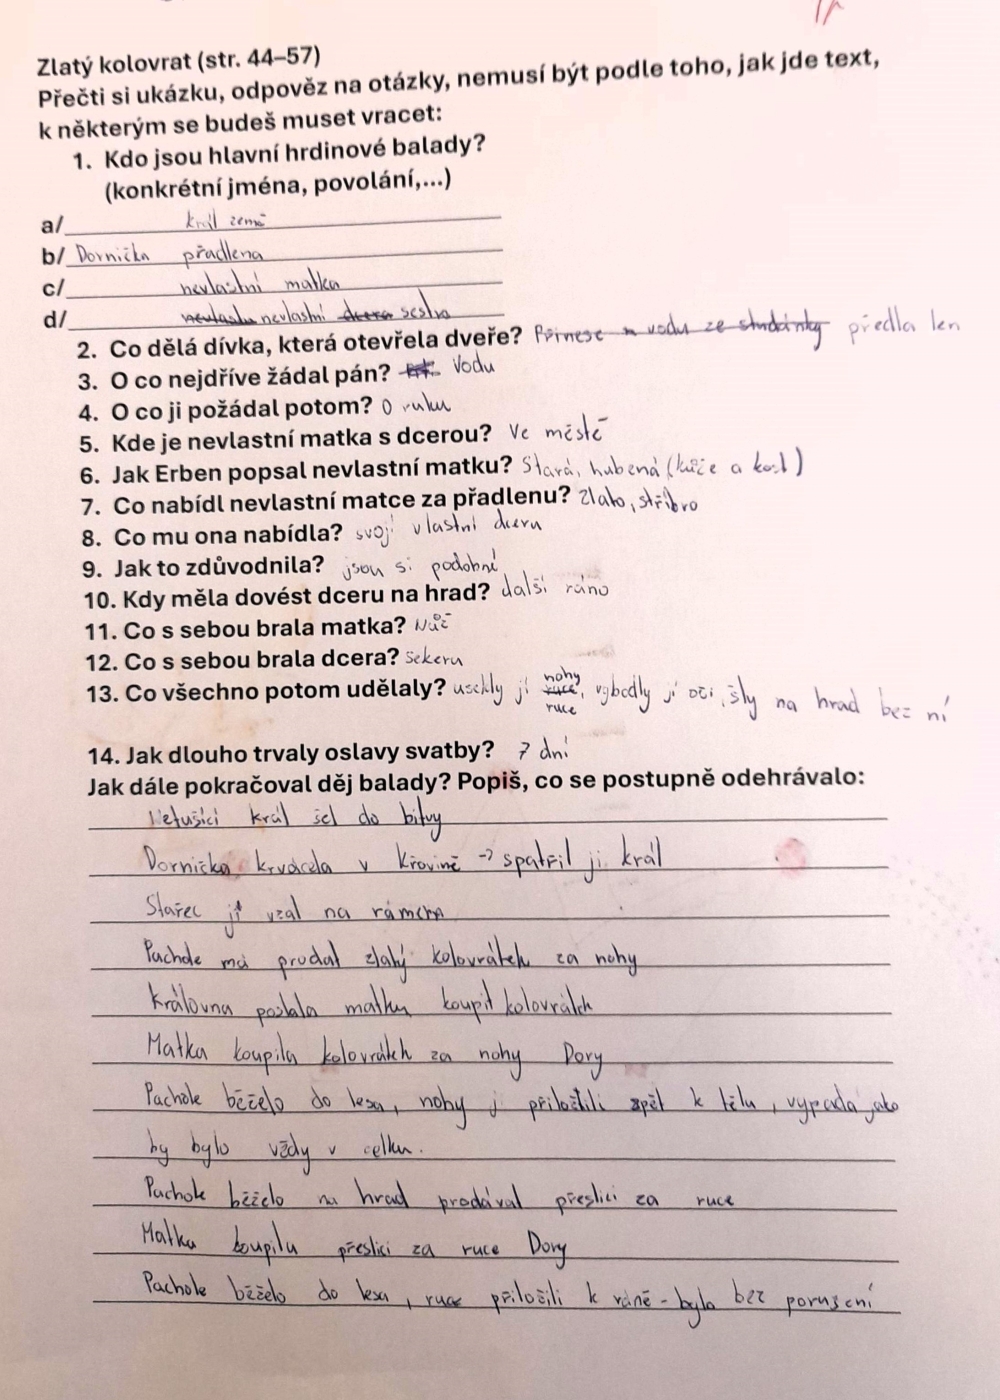 Zlatý kolovrat (str. 44–57)
Přečti si ukázku, odpověz na otázky, nemusí být podle toho, jak jde text,
k některým se budeš muset vracet:
1. Kdo jsou hlavní hrdinové balady?
(konkrétní jména, povolání,...)
a/ král země
b/ Dornička přadlena
c/ nevlastní matka
d/ nevlastní dcera sestra
2. Co dělá dívka, která otevřela dveře? Přinese vodu ze studánky předla len
3. O co nejdříve žádal pán? Vodu
4. O co ji požádal potom? O ruku
5. Kde je nevlastní matka s dcerou? Ve městě
6. Jak Erben popsal nevlastní matku? Stará, hubená (kůže a kost)
7. Co nabídl nevlastní matce za přadlenu? Zlato, stříbro
8. Co mu ona nabídla? svojí vlastní dceru
9. Jak to zdůvodnila? jsou si podobné
10. Kdy měla dovést dceru na hrad? další ráno
11. Co s sebou brala matka? Nůž
12. Co s sebou brala dcera? Sekeru
13. Co všechno potom udělaly? usekly jí nohy ruce, vybodly jí oči, šly na hrad bez ní
14. Jak dlouho trvaly oslavy svatby? 7 dní
Jak dále pokračoval děj balady? Popiš, co se postupně odehrávalo:
Netušící král šel do bitvy
Dornička krvácela v křovině -> spatřil ji král
Stařec ji vzal na ramena
Pachole má prodat zlatý kolovrátek za nohy
Královna poslala matku koupit kolovrátek
Matka koupila kolovrátek za nohy Dory
Pachole běželo do lesa, nohy jí přiložili zpět k tělu, vypadá jako
by bylo vždy v celku.
Pachole běželo na hrad prodával přeslici za ruce
Matka koupila přeslici za ruce Dory
Pachole běželo do lesa, ruce přiložili k ráně - bylo bez porušení